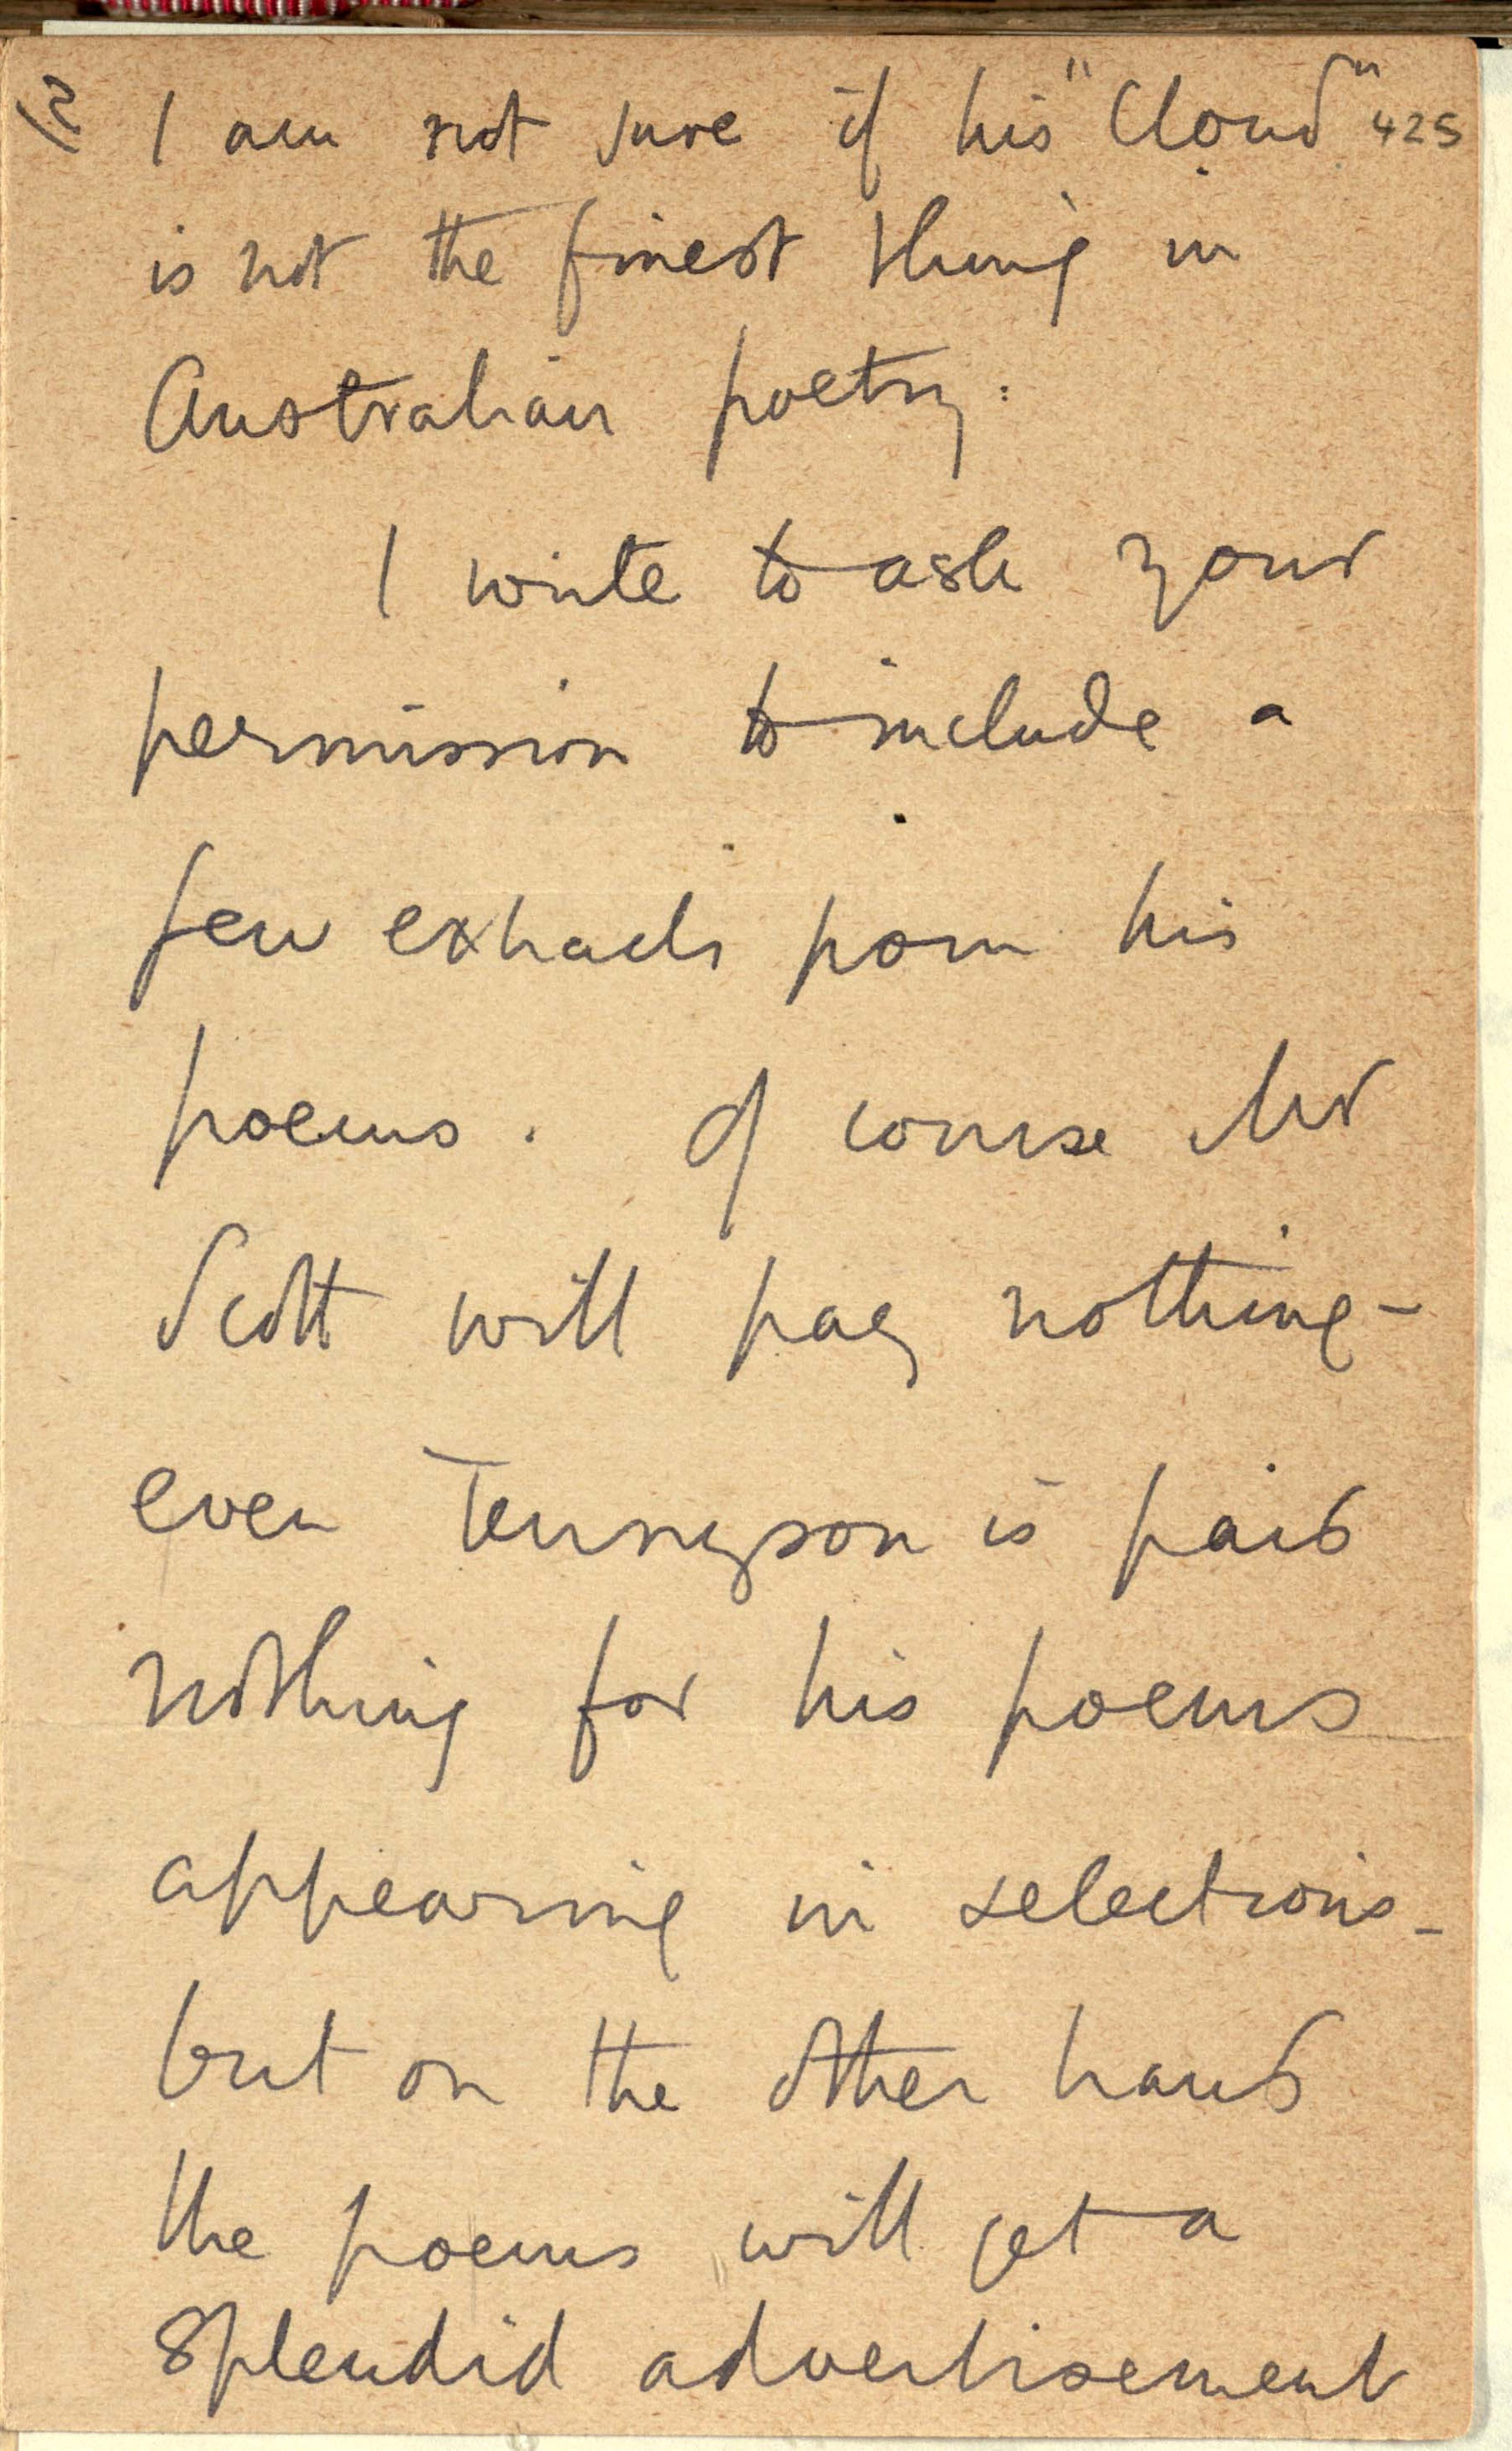 2) I am not sure if his "Cloud" 425
is not the finest thing in
Australian poetry.
I write to ask your
permission to include a
few extracts from his
poems. Of course Mr
Scott will pay nothing -
even Tennyson is paid
nothing for his poems
appearing in selections -
but on the other hand
the poems will get a
splendid advertisement